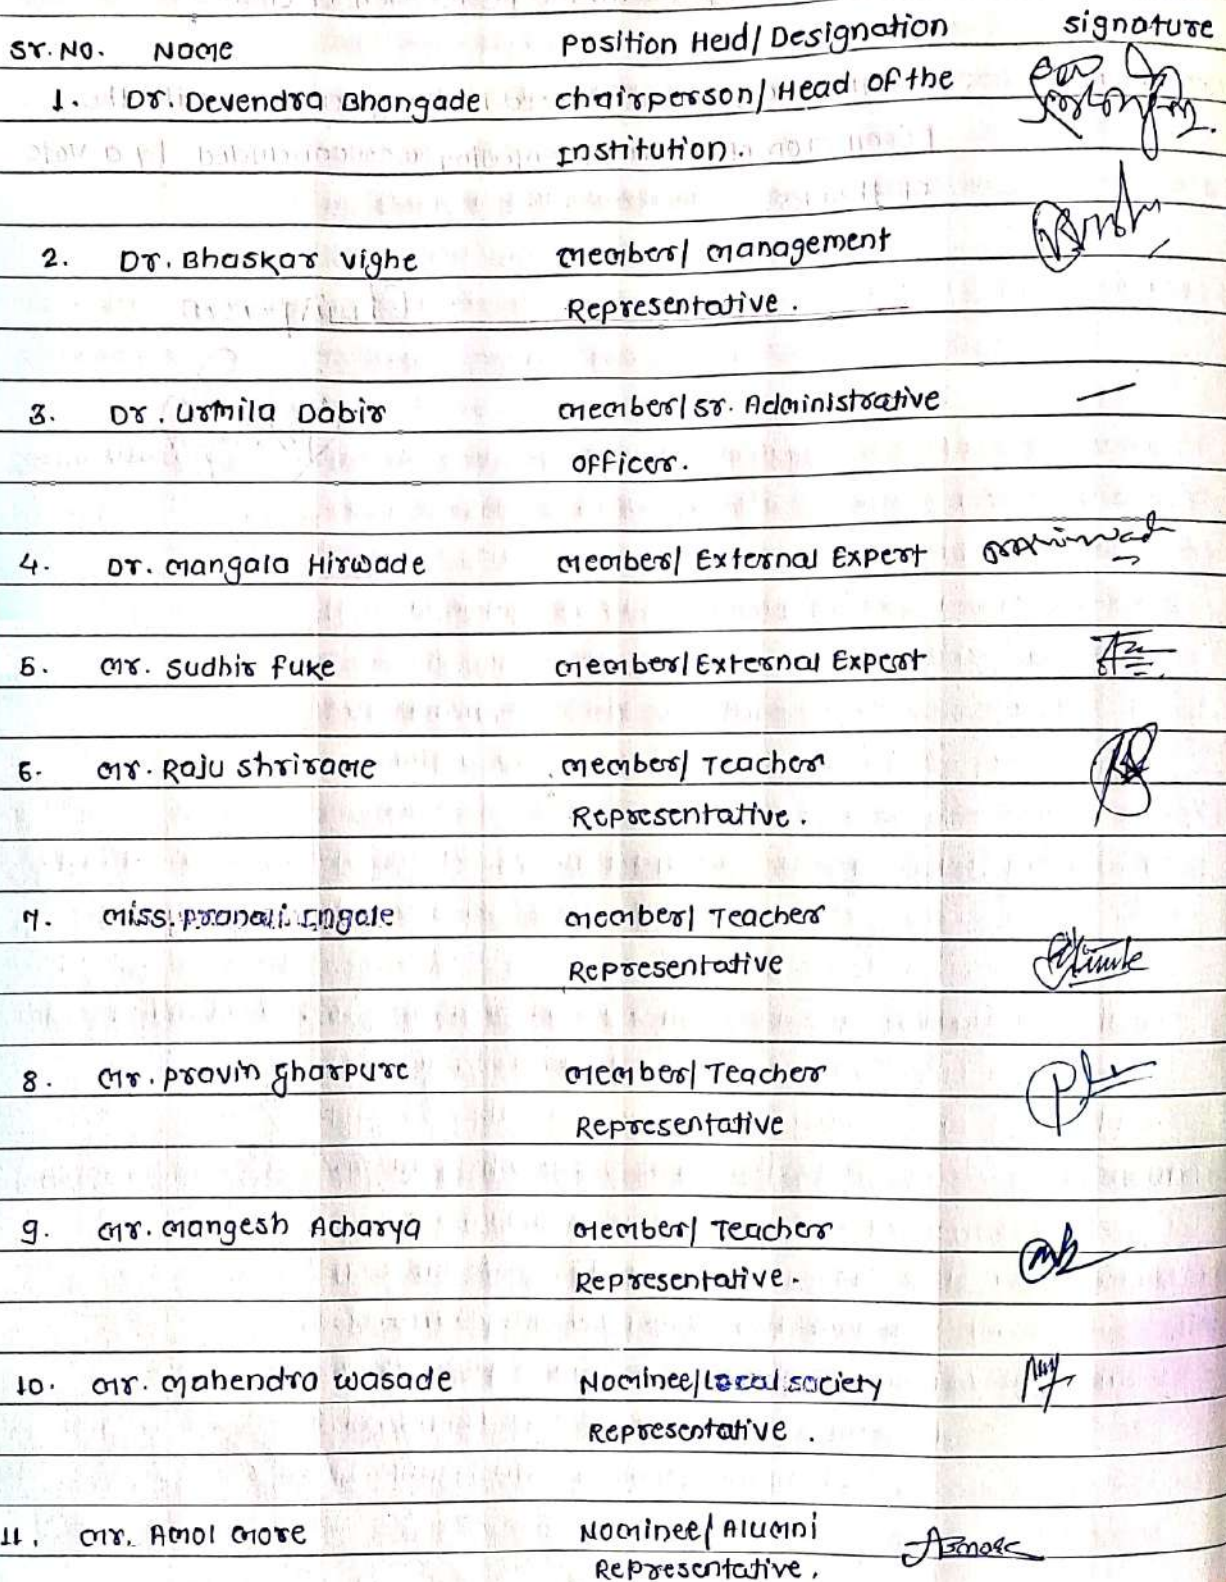 Sr. No. Name Position Held/ Designation signature
1. Dr. Devendra Bhongade chairperson/ Head of the
Institution.
2. Dr. Bhaskar Vighe member/ management
Representative.
3. Dr. Urmila Dabir member/ Sr. Administrative —
Officer.
4. Dr. Mangala Hirwade member/ External Expert
5. Mr. Sudhir Fuke member/ External Expert
6. Mr. Raju Shrirame member/ Teacher
Representative.
7. Miss. Pranali Ingale member/ Teacher
Representative
8. Mr. Pravin Gharpure member/ Teacher
Representative
9. Mr. Mangesh Acharya member/ Teacher
Representative.
10. Mr. Mahendra Wasade Nominee/ Local society
Representative.
11. Mr. Amol More Nominee/ Alumni
Representative.